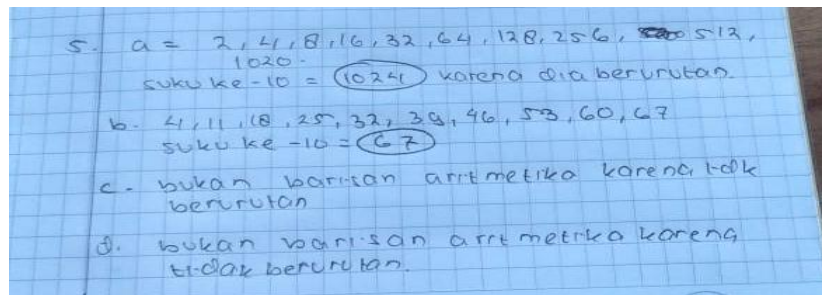 5. a = 2, 4, 8, 16, 32, 64, 128, 256, 512,
1020.
suku ke-10 = 1024 karena dia berurutan.
b. 4, 11, 18, 25, 32, 39, 46, 53, 60, 67
suku ke -10 = 67
c. bukan barisan aritmetika karena tidak
berurutan
d. bukan barisan aritmetika karena
tidak berurutan.